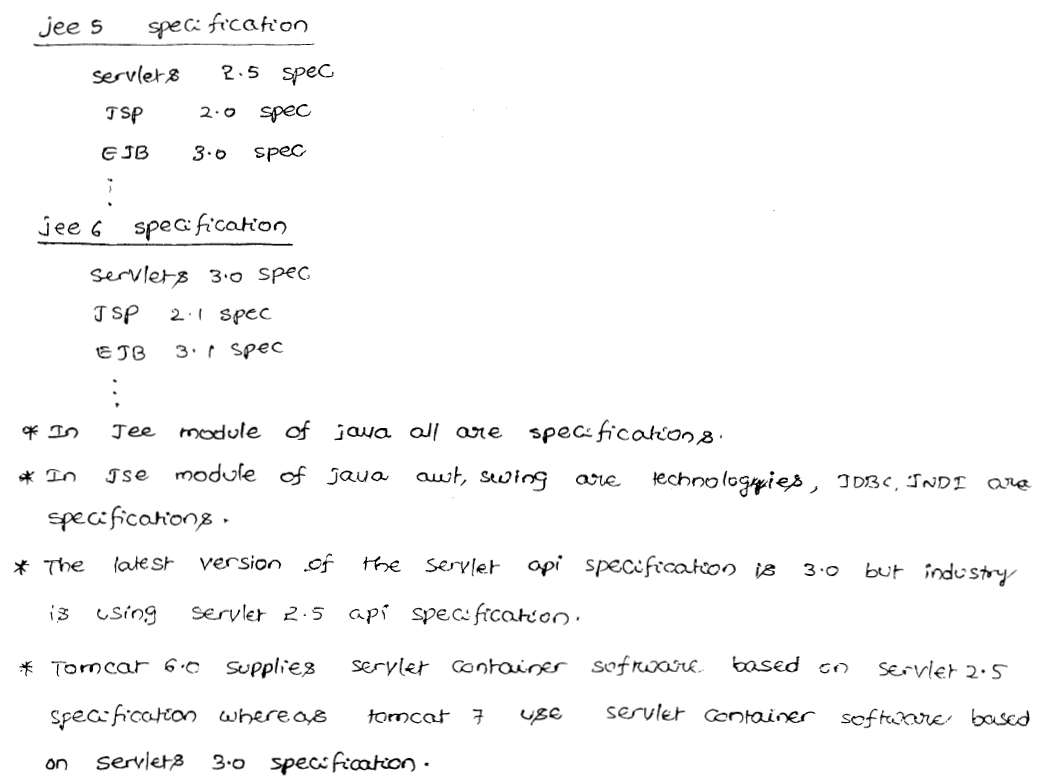 jee 5 specification
servlets 2.5 spec
JSP 2.0 spec
EJB 3.0 spec
⋮
jee 6 specification
servlets 3.0 spec
JSP 2.1 spec
EJB 3.1 spec
⋮
* In Jee module of java all are specifications.
* In Jse module of java awt, swing are technologyies, JDBC, JNDI are
specifications.
* The latest version of the servlet api specification is 3.0 but industry
is using servlet 2.5 api specification.
* Tomcat 6.0 supplies servlet container software based on servlet 2.5
specification whereas tomcat 7 use servlet container software based
on servlets 3.0 specification.